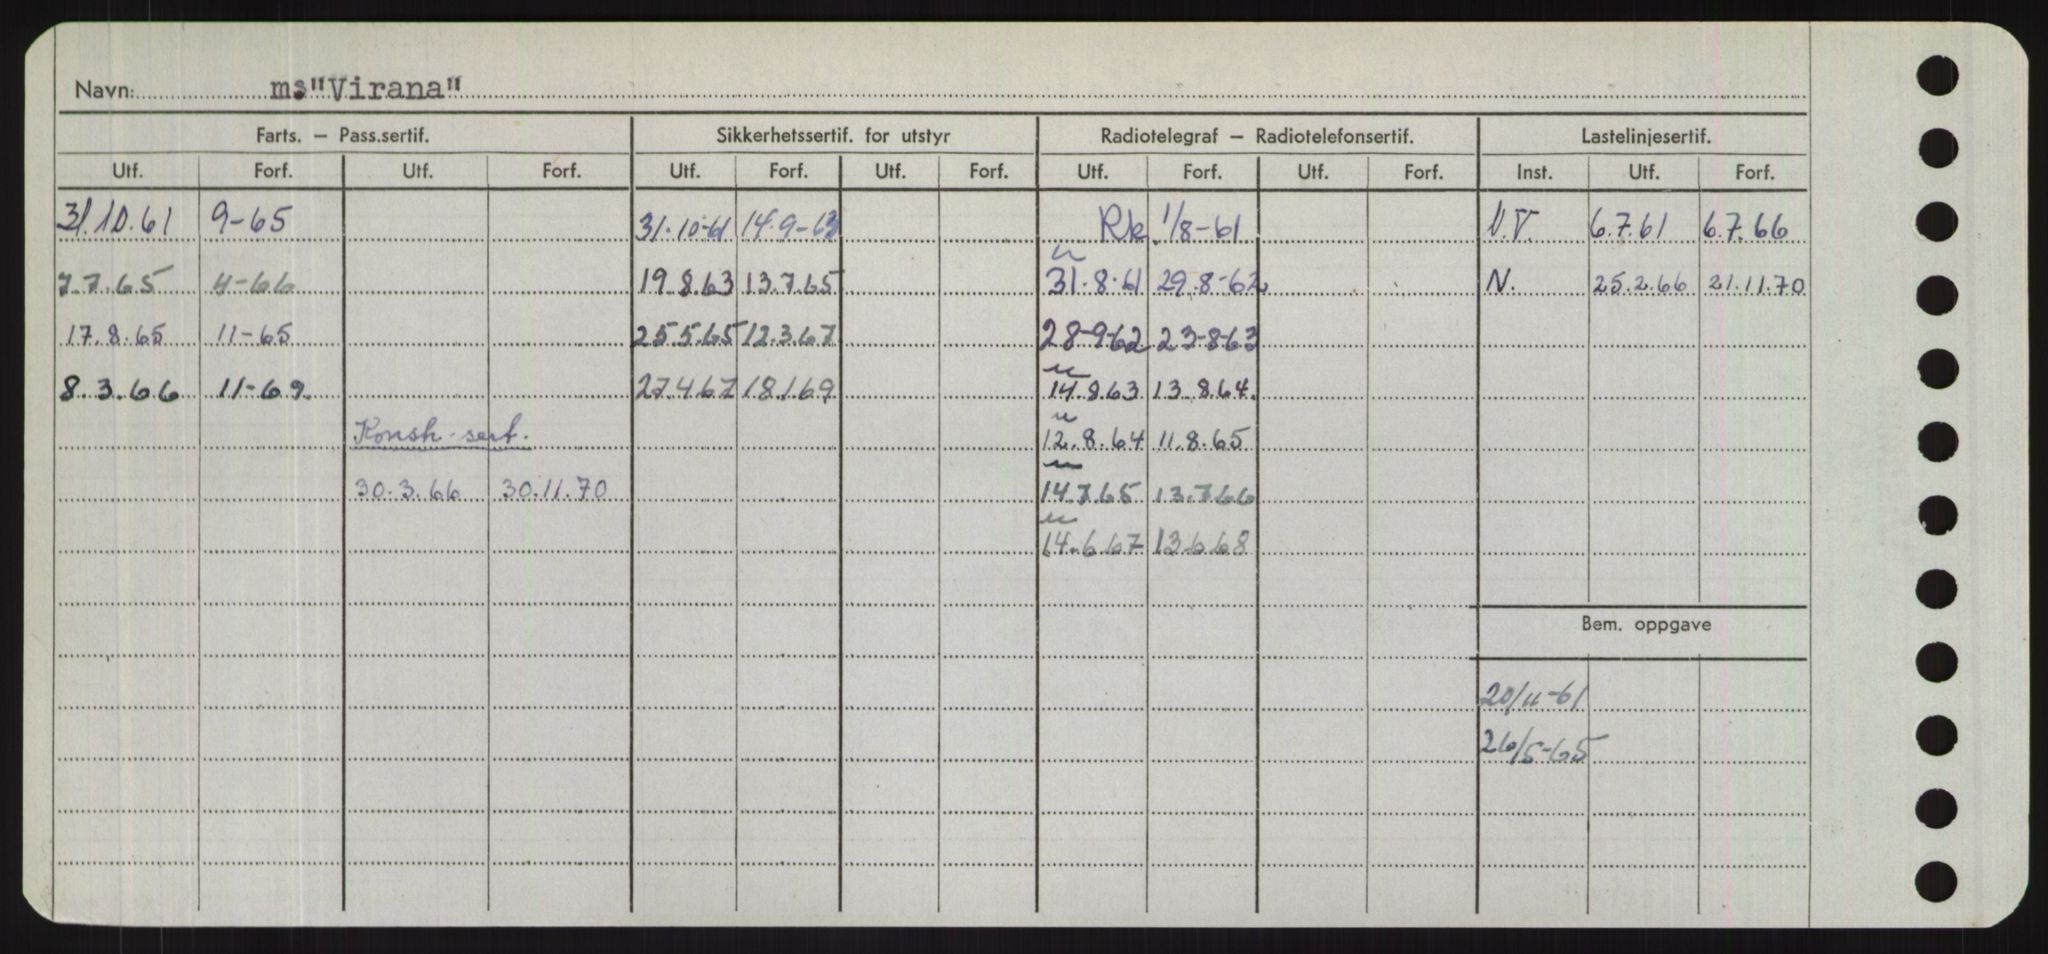 Navn: ms"Virana"
Farts. — Pass.sertif. Sikkerhetssertif. for utstyr Radiotelegraf — Radiotelefonsertif. Lastelinjesertif.
Utf. Forf. Utf. Forf. Utf. Forf. Utf. Forf. Utf. Forf. Utf. Forf. Inst. Utf. Forf.
31.10.61 9-65 31.10-61 14.9-63 Rk. 1/8-61 N.V. 6.7.61 6.7.66
7.7.65 4-66 19.8.63 13.7.65 31.8.61 29.8-62 N. 25.2.66 21.11.70
17.8.65 11-65 25.5.65 12.3.67 28-9-62 23-8-63
8.3.66 11-69. 27.4.67 18.1.69 14.8.63 13.8.64.
Konstr.-sert. 12.8.64 11.8.65
30.3.66 30.11.70 14.7.65 13.7.66
14.6.67 13.6.68
Bem. oppgave
20/11-61
26/5-65